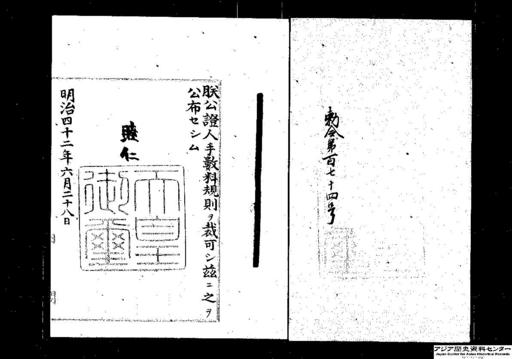 勅令第百七十四号
朕公證人手數料規則ヲ裁可シ茲ニ之ヲ
公布セシム
睦仁
天皇
御璽
明治四十二年六月二十八日
アジア歴史資料センター
Japan Center for Asian Historical Records